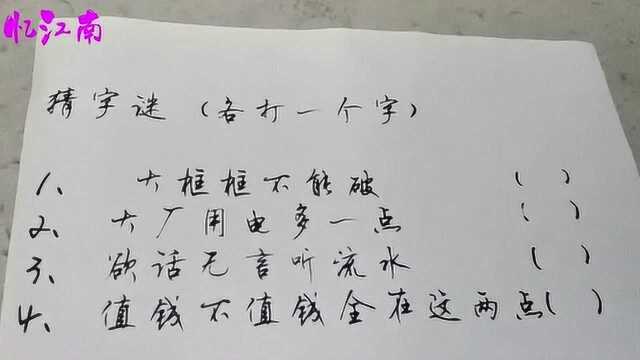 忆江南
猜字谜（各打一个字）
1、大框框不能破（ ）
2、大厂用电多一点（ ）
3、欲话无言听流水（ ）
4、值钱不值钱全在这两点（ ）